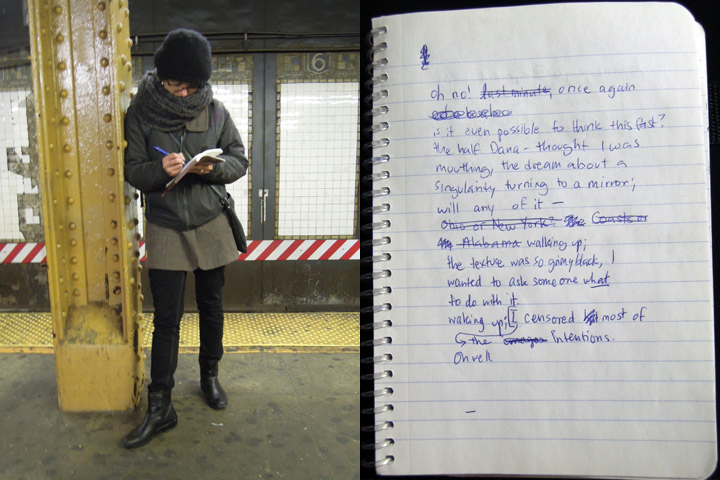 6
oh no! last minute, once again
is it even possible to think this fast?
the half Dana - thought I was
mouthing, the dream about a
singularity turning to a mirror;
will any of it —
Ohio or New York? the Coasts or
Alabama walking up;
the texture was so grimy black, I
wanted to ask someone what
to do with it.
waking up; I censored most of
the Intentions.
Oh well.
—